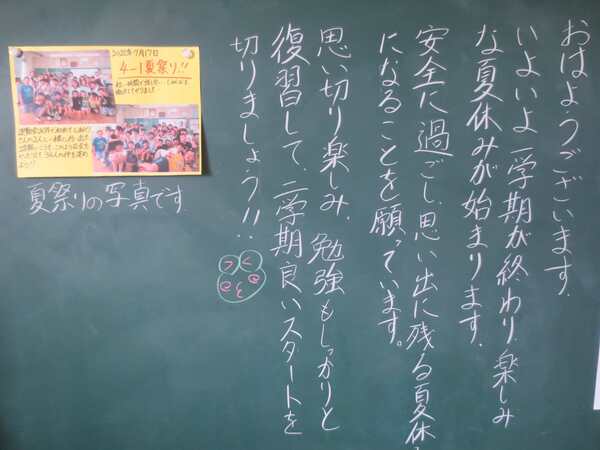 おはようございます.
いよいよ一学期が終わり、楽しみ
な夏休みが始まります.
安全に過ごし、思い出に残る夏休
になることを願っています。
思い切り楽しみ、勉強もしっかりと
復習して、二学期良いスタートを
切りましょう!!
4-1夏祭り!!
夏祭りの写真です.